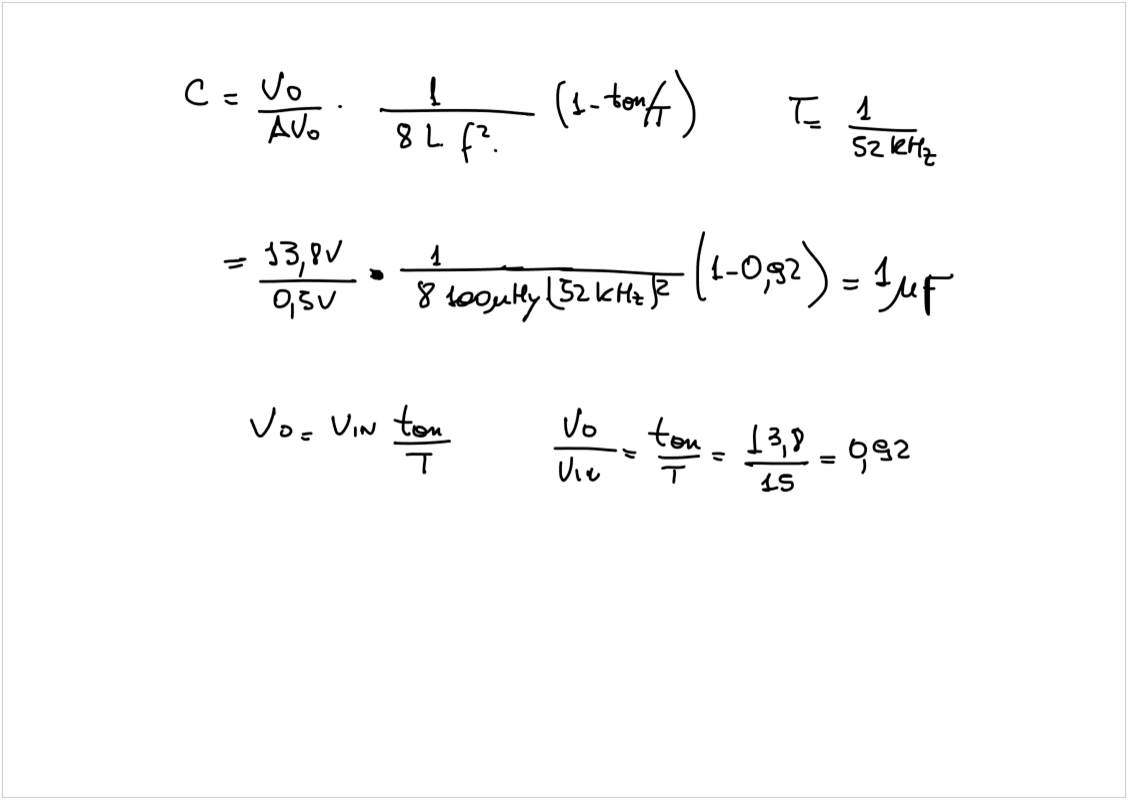 C = Vo/ΔVo · 1/(8 L f².) (1 - ton/T) T = 1/52 kHz
= 13,8V/0,5V · 1/(8 100μHy (52 kHz)²) (1-0,92) = 1μF
Vo = VIN ton/T Vo/VIN = ton/T = 13,8/15 = 0,92